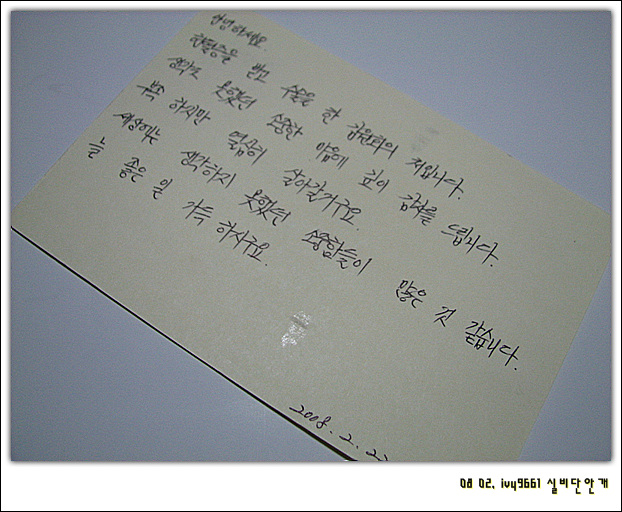 안녕하세요.
헌혈증을 받고 수술을 한 김원희의 처입니다.
생각도 못했던 소중한 마음에 깊이 감사를 드립니다.
부족 하지만 열심히 살아갈거구요.
세상에는 생각하지 못했던 소중함들이 많은 것 같습니다.
늘 좋은 일 가득 하시구요.
2008. 2. 22
08 02, ivy9661 실비단안개